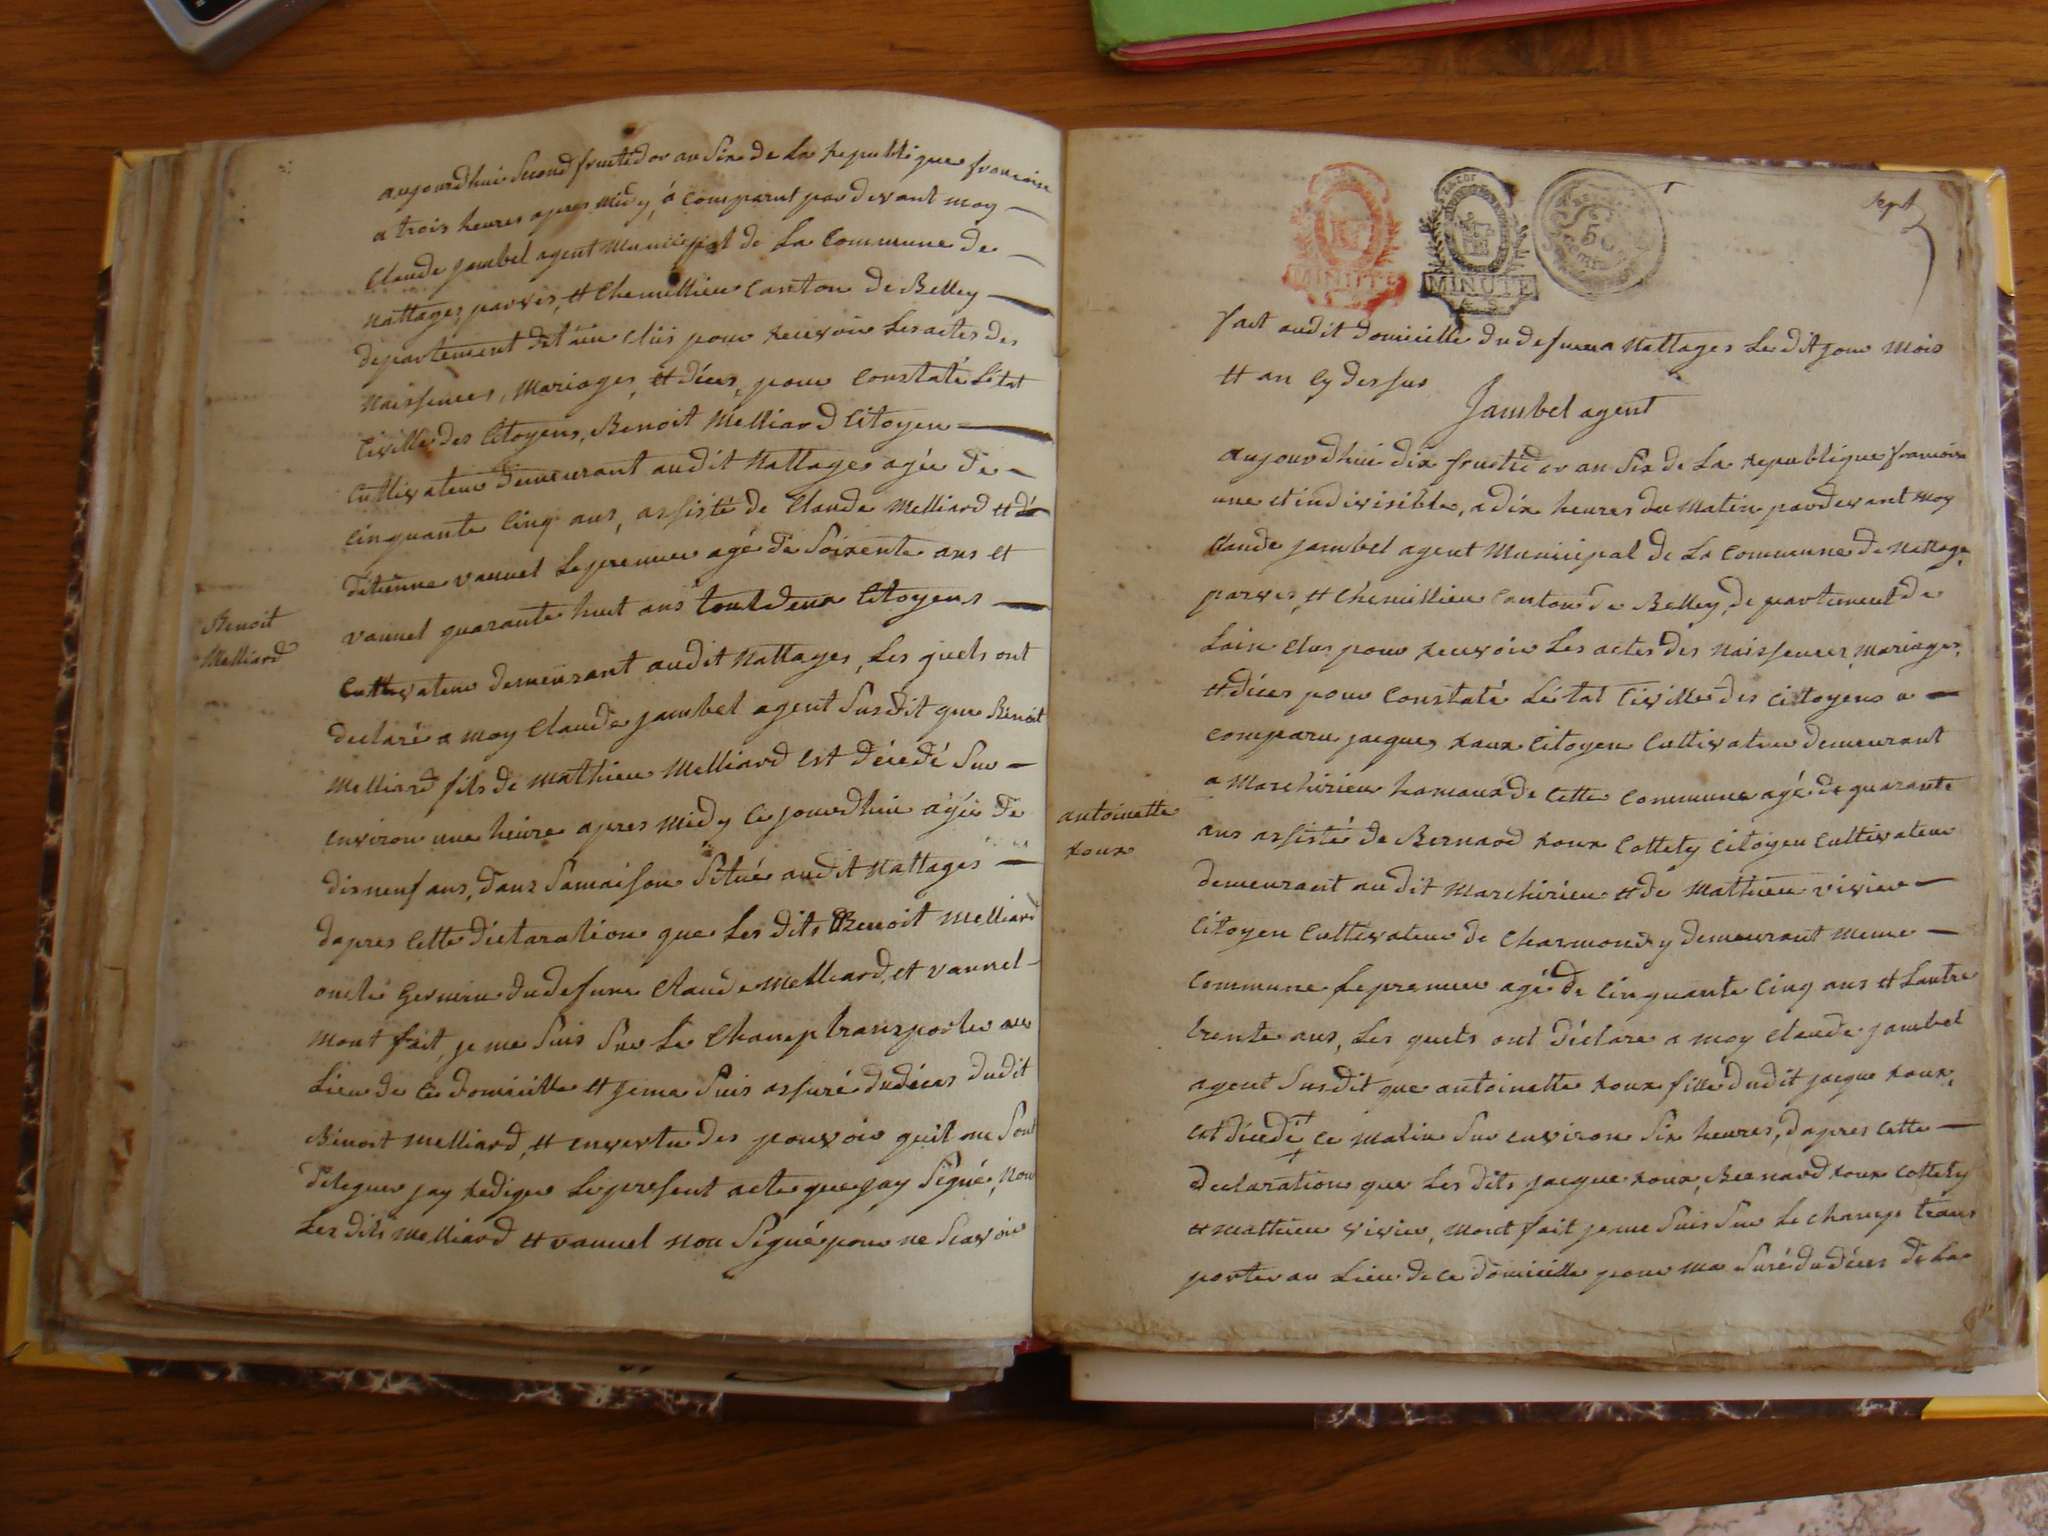 aujourdhui Second fructidor an Six de la Republique francoise
a trois heures apres midy, á comparut pardevant moy
Claude jambel agent Municipal de La Commune de
Nattages, parves, et Chemillieu Canton de Belley
departement de l'ain elus pour recevoir Les actes des
Naissences, Mariages, et déces, pour Constaté L'état
Civille des Citoyens, Benoit Melliard Citoyen
Cultivateur demeurant audit Nattages agée de
Cinquante Cinq ans, assisté de Claude Melliard et dé
d'étienne vannel Le premier agé de Soixente ans et
vannel quarante huit ans tout deux Citoyens
Benoit
Melliard
Cultivateur demeurant audit Nattages, Les quels ont
declaré a moy Claude jambel agent Susdit que Benoit
Melliard fils de Mathieu Melliard est décedé Sur
environ une heure apres midy Ce jourdhui agée de
disneuf ans, dans Samaison Situé audit Nattages
dapres Cette déclaration que Les dits Benoit Melliard
oncle Germin du defunt Claude Melliard, et vannel
mont fait, je me Suis Sur Le Champ transporter au
Lieu de Ce domicille et je me Suis assuré du déces dudit
Benoit Melliard, et envertu des pouvoir quil me Sont
déleguer jay Rediger Le present acte que jay Signé, Non
Les dits Melliard et vannel Non Signé pour ne Scavoir
Sept
MINUTE
MINUTE
50
fait audit domicille du defunt a Nattages Le dit jour Mois
et an Cy dessus
Jambel agent
aujourdhui dix fructidor an Six de La Republique francoise
une et indivisible, a dix heures du Matin pardevant moy
Claude jambel agent Municipal de La Commune de Nattage,
parves, et Chemillieu Canton de Belley, departement de
Lain elus pour recevoir Les actes des Naissences, Mariages,
et déces pour Constaté Létat Civille des Citoyens a
Comparu jacques Roux Citoyen Cultivateur demeurant
a Marchirieu hameaux de Cette Commune agé de quarante
antoinette
Roux
ans assisté de Bernard Roux Collety Citoyen Cultivateur
demeurant audit Marchirieu et de Mathieu vivier
Citoyen Cultivateur de Charmondy demeurant meme
Commune Le premier agé de Cinquante Cinq ans et Lautre
trente ans, Les quels ont déclare a moy Claude jambel
agent Susdit que antoinette Roux fille dudit jacque Roux,
est décedé Ce Matin Sur environ Six heures, dapres Cette
Declaration que Les dits jacque Roux, Bernard Roux Collety
et Mathieu vivier, mont fait je me Suis Sur Le Champ trans
porter au Lieu de Ce domicille pour ma Suré du déces de La